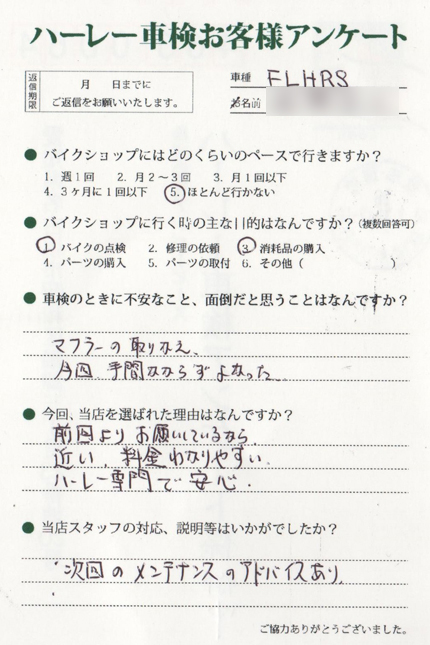 ハーレー車検お客様アンケート
返信期限
月 日までに
ご返信をお願いいたします。
車種 FLHRS
お名前
● バイクショップにはどのくらいのペースで行きますか?
1. 週1回 2. 月2~3回 3. 月1回以下
4. 3ヶ月に1回以下 5. ほとんど行かない
● バイクショップに行く時の主な目的はなんですか?(複数回答可)
1. バイクの点検 2. 修理の依頼 3. 消耗品の購入
4. パーツの購入 5. パーツの取付 6. その他( )
● 車検のときに不安なこと、面倒だと思うことはなんですか?
マフラーの取りかえ、
今回、手間かからずよかった
● 今回、当店を選ばれた理由はなんですか?
前回よりお願いしているから、
近い、料金わかりやすい、
ハーレー専門で安心。
● 当店スタッフの対応、説明等はいかがでしたか?
次回のメンテナンスのアドバイスあり、
ご協力ありがとうございました。